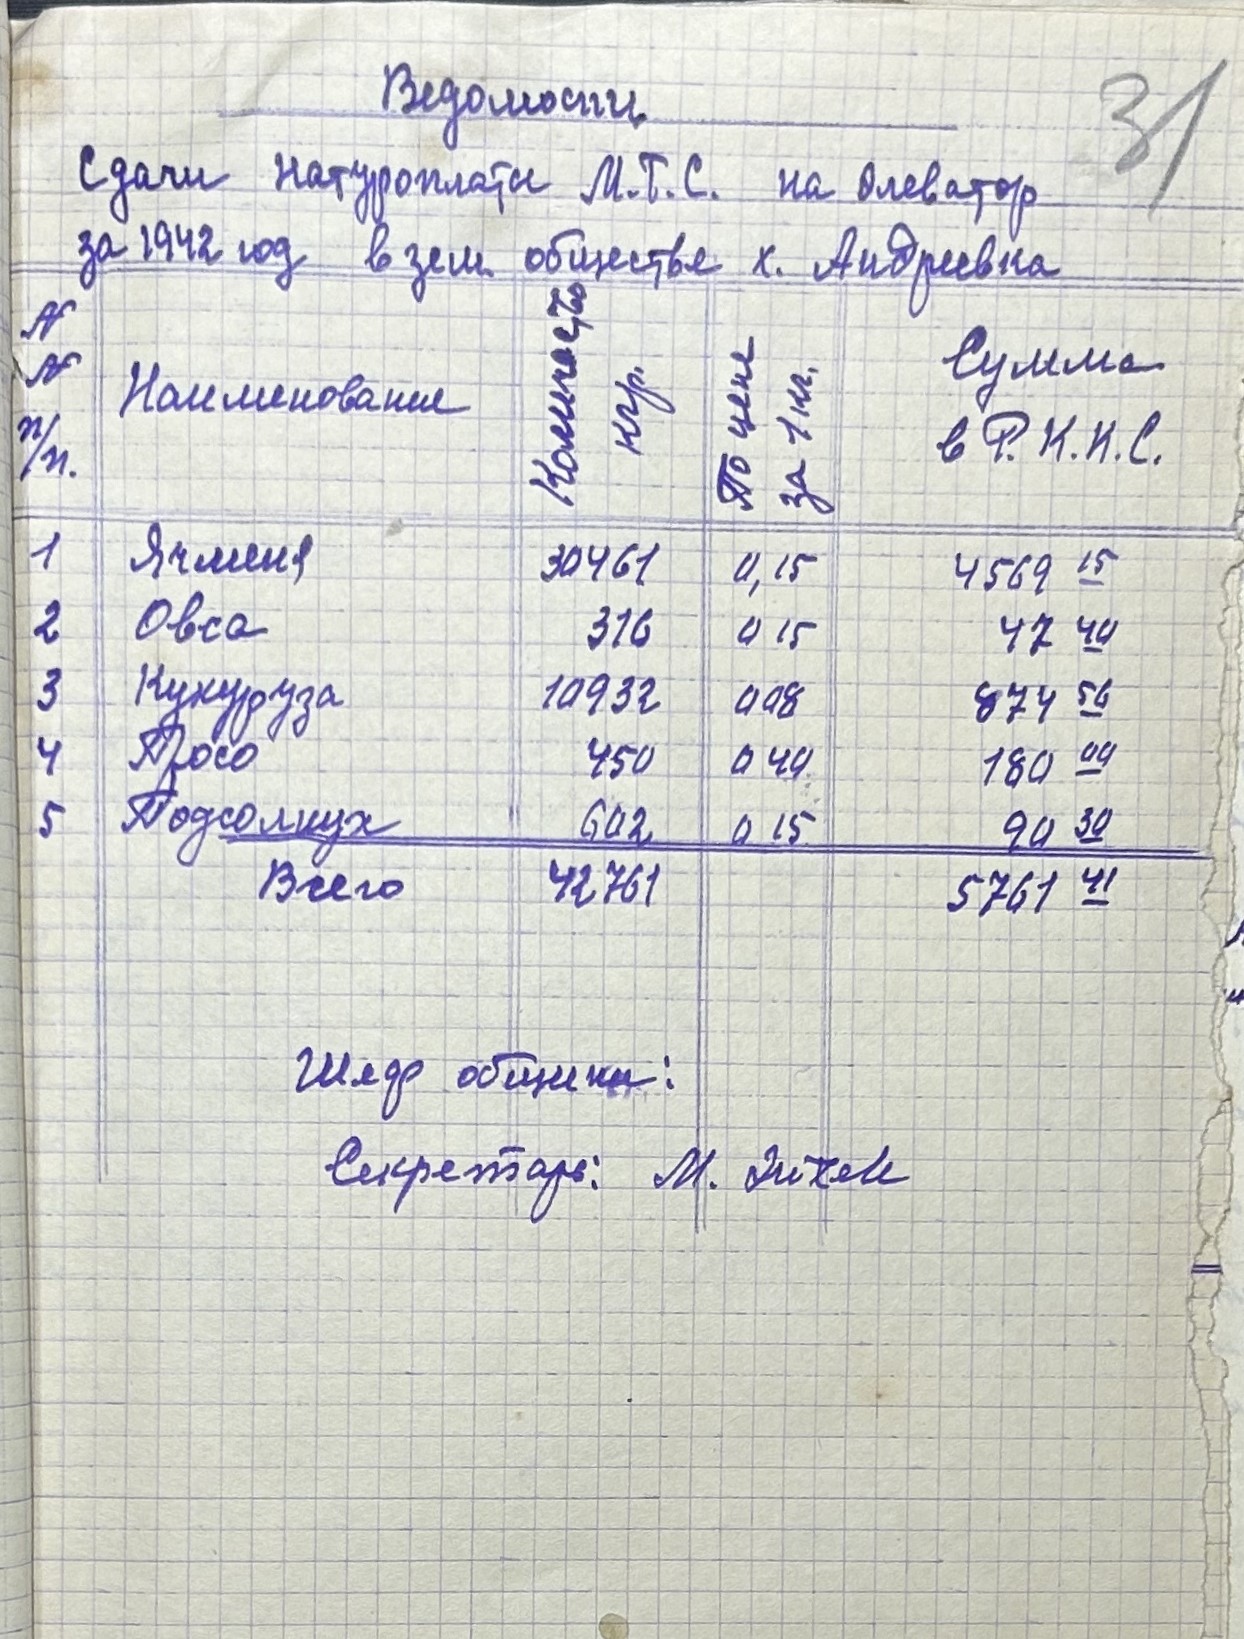 31
Ведомость
Сдачи натуроплаты М.Т.С. на Олеватор
за 1942 год в зем. обществе х. Андреевка
№ № п/п. Наименование Количество кгр. По цене за 1 кг. Сумма в Р. К.К.С.
1 Ячменя 30461 0,15 4569 15
2 Овса 316 0 15 47 40
3 Кукуруза 10932 0 08 874 56
4 Просо 450 0 40 180 00
5 Подсолнух 602 0 15 90 30
Всего 42761 5761 41
общины:
Секретарь: М.